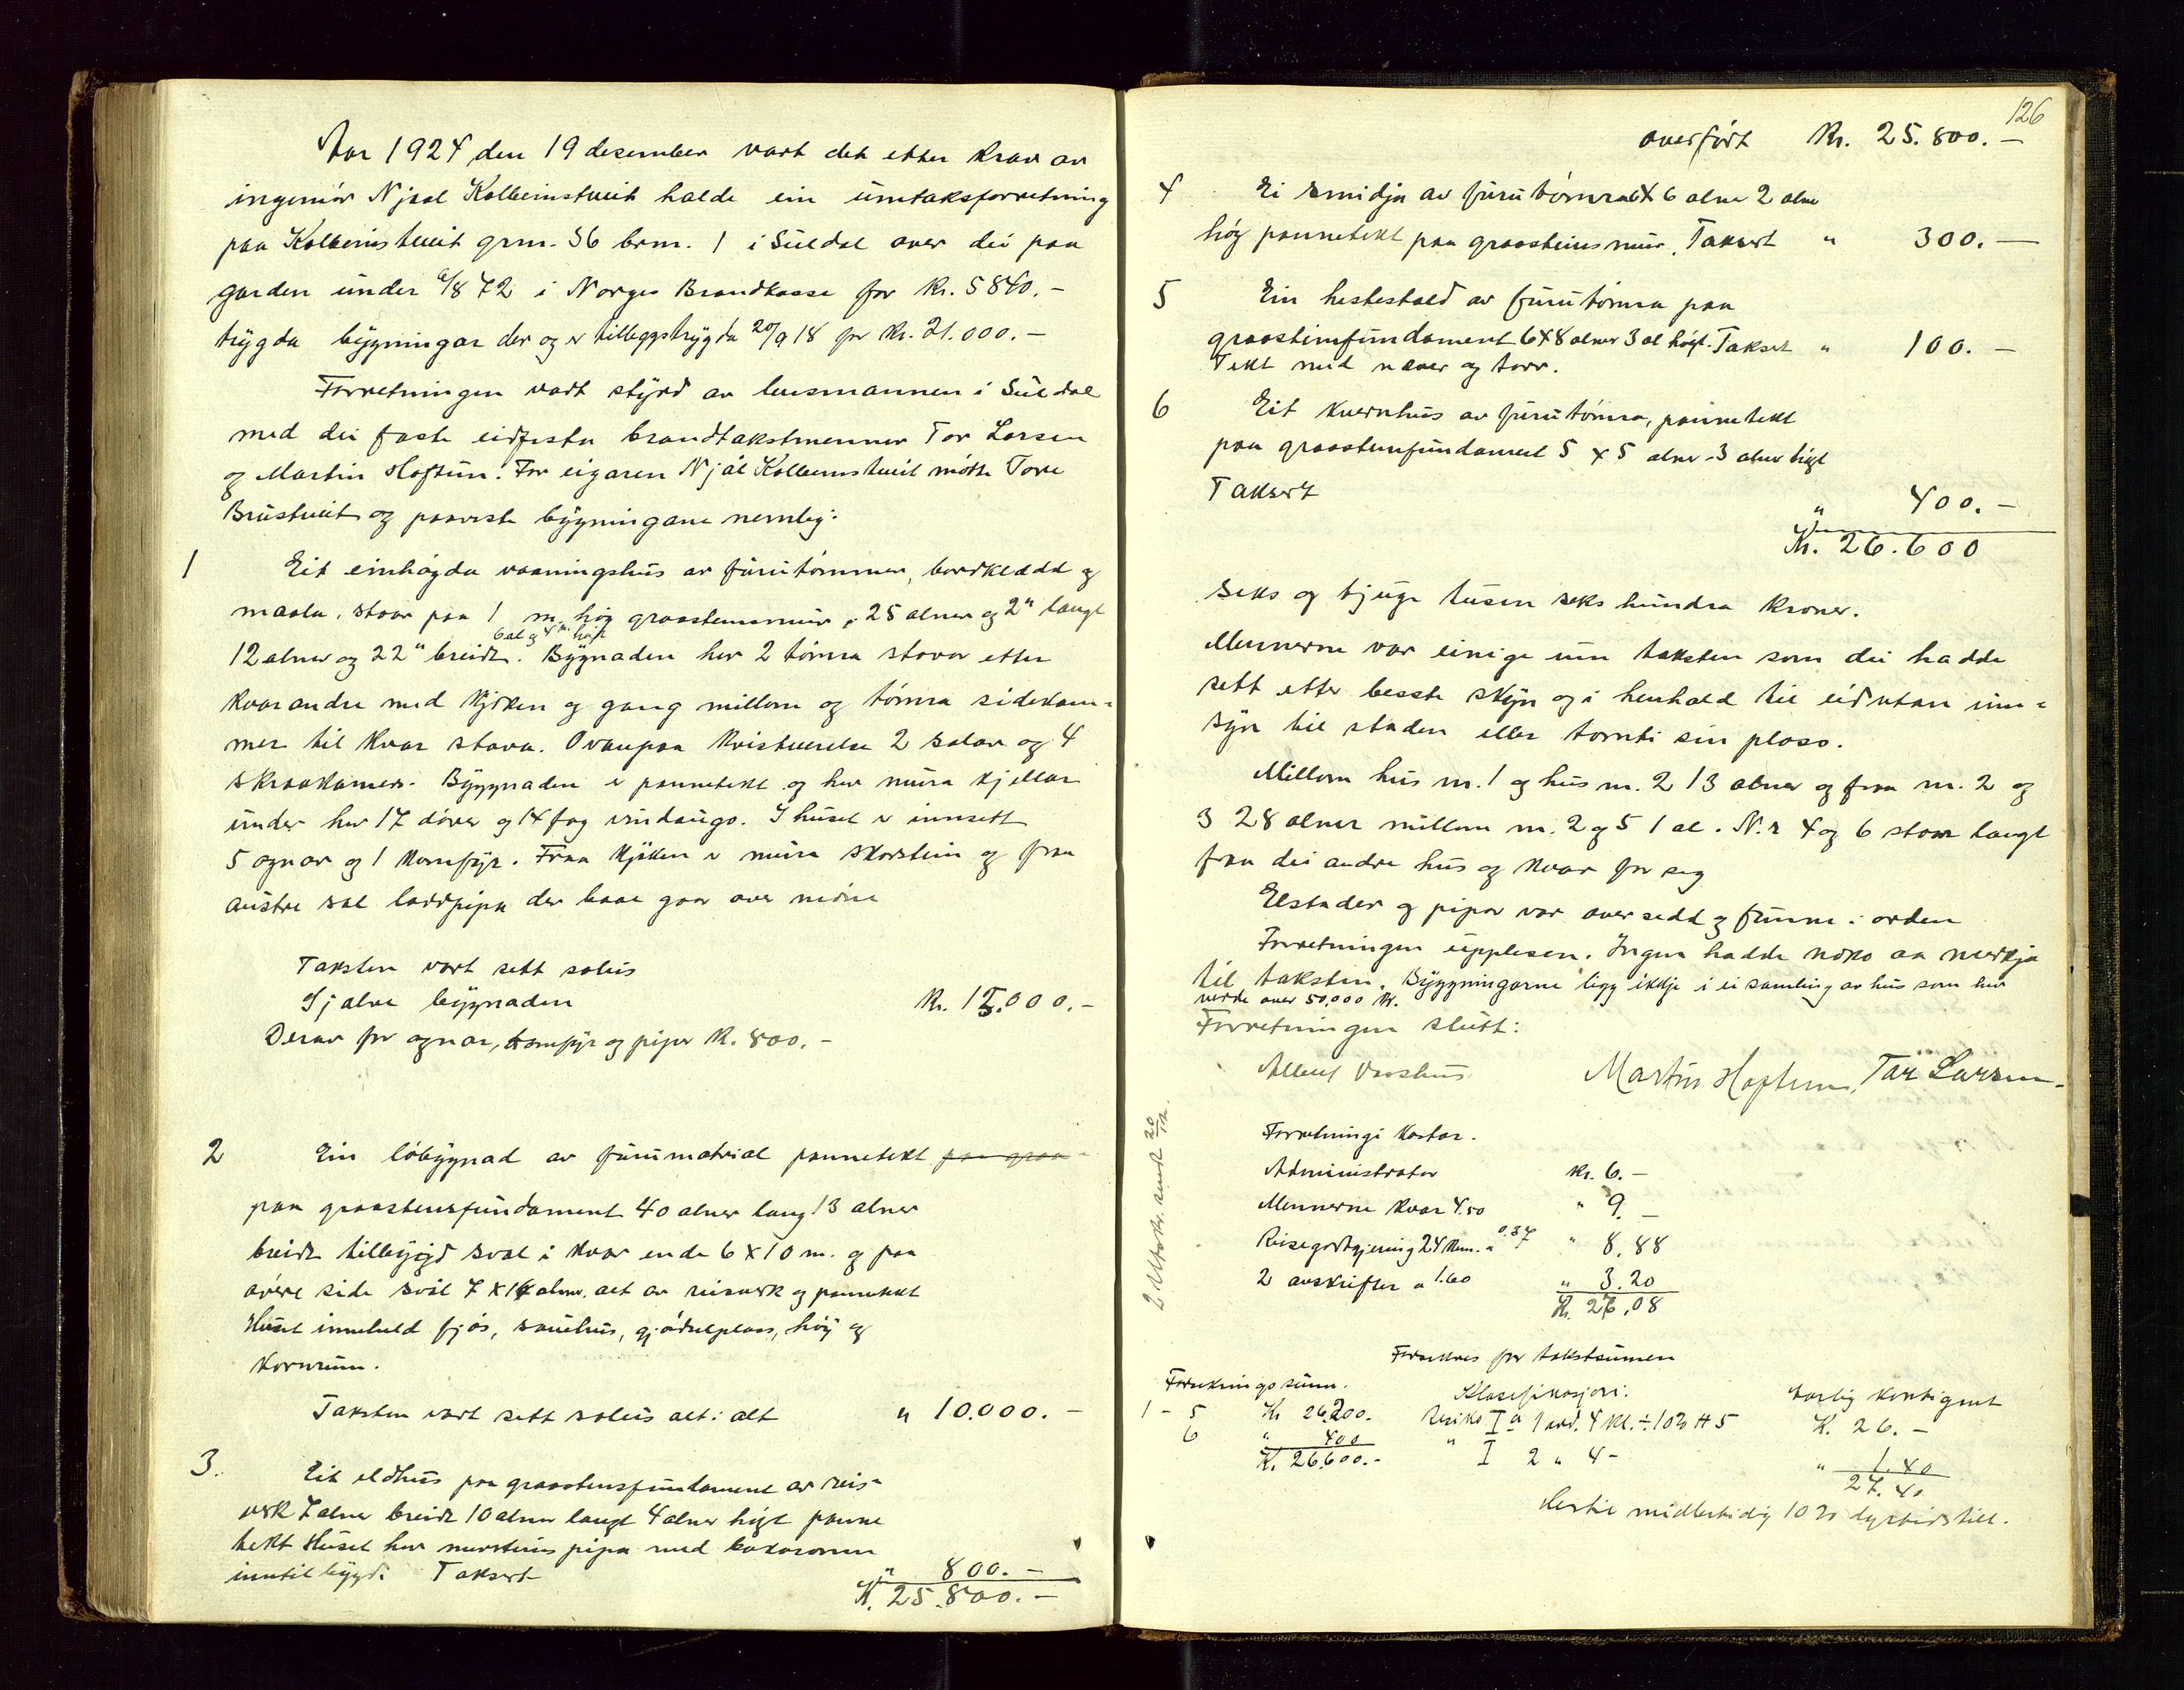 Aar 1924 den 19 desember vart det etter krav av
ingeniør Njaal Kolbeinstveit halde ein umtaksforretning
paa Kolbeinstveit grn. 36 brn. 1 i Suldal over dei paa
garden under 6/8 72 i Norges Brandkasse for kr. 5840.-
trygda bygningar der og er tilleggstrygda 20/9 18 for kr. 21.000.-
Forretningen vart styrd av lensmannen i Suldal
med dei faste eidfesta brandtakstmenner Tor Larsen
og Martin Hoftun. For eigaren Njål Kolbeinstveit møtte Tore
Brustveit og paaviste bygningane nemleg:
1 Eit einhøgda vaaningshus av furutømmer, bordklædd og
maala, staar paa 1 m. høg graasteinsmur, 25 alner og 2" langt
6 al og 4" høgt
12 alner og 22" breidt. Bygnaden her 2 tømra stovor etter
kvarandre med kjøken og gang millom og tømra sidekam-
mer til kvar stova. Ovanpaa kvistverelse 2 salar og 4
skraakamers. Byggnaden er pannetekt og her mura kjellar
under her 17 dører og 14 fag vindaugo. I huset er innsett
5 ognar og 1 komfyr. Fraa kjøken er mura skorstein og fraa
austre sal laddpipa der baae gaar over møne
Taksten vart sett soleis
Sjølve bygnaden kr. 15.000.-
Derav for ognar, komfyr og piper kr. 800.-
2 Ein løbygnad av furumatrial pannetekt paa graa-
paa graasteinsfundament 40 alner lang 13 alner
breidt tilbygd sval i kvar ende 6 x 10 m. og paa
øvre side sval 7 x 14 alner. alt av reisverk og pannetekt
Huset inneheld fjøs, sauehus, gjødselplass, høy og
kornrum.
Taksten vart sett soleis alt i alt " 10.000.-
3. Eit eldhus paa graasteinsfundament av reis-
verk 7 alner breidt 10 alner langt 4 alner høgt panne
tekt Huset her murstins pipa med bakaromn
inntilbygd. Taksert " 800.-
Kr. 25.800.-
126
overført Kr. 25.800.-
4 Ei smidja av furutømra 6 x 6 alner 2 alner
høg pannetekt paa graasteins mur. Taksert " 300.-
5 Ein hestestald av furutømra paa
graasteinfundament 6 x 8 alner 3 al høgt. Taksert " 100.-
Tekt med næver og torv.
6 Eit kvernhus av furutømra, pannetekt
paa graasteinfundament 5 x 5 alner 3 alner høgt
Taksert " 400.-
Kr. 26.600
seks og tjuge tusen seks hundra kroner.
Mennerne var einige um taksten som dei hadde
sett etter besste skyn og i henhold til eid utan inn-
syn til staden eller tomti sin plass.
Millom hus nr. 1 og hus nr. 2 13 alner og fraa nr. 2 og
3 28 alner millom nr. 2 og 5 1 al. Nr 4 og 6 staar langt
fraa dei andre hus og kvar for seg
Elstader og pipor var oversedd og funne i orden
Forretningen upplesen. Ingen hadde noko aa merkja
til taksten. Byggningarne ligg ikkje i ei samling av hus som her
verde over 50.000 kr.
Forretningen slutt:
Martin Hoftun, Tor Larsen.
Forretningi kostar.
Administrator kr. 6.-
Mennerne kvar 4.50 " 9.-
Reisegodtgjering 24 km. a 0.37 " 8,88
2 avskrifter a 1.60 " 3.20
Kr. 27,08
2 Utskr. sendt 20/12.
Forsikres for takstsumen
Forsikringssum. Klassifikasjon. Aarlig kontigent
1 - 5 Kr 26.200. Risiko I a 1 avd. 4 kl. ÷ 10% H 5 K. 26.-
6 " 400 " I 2 " 4 - " 1.40
K. 26.600.- 27.40
Hertil midlertidig 10% dyrtidstill.